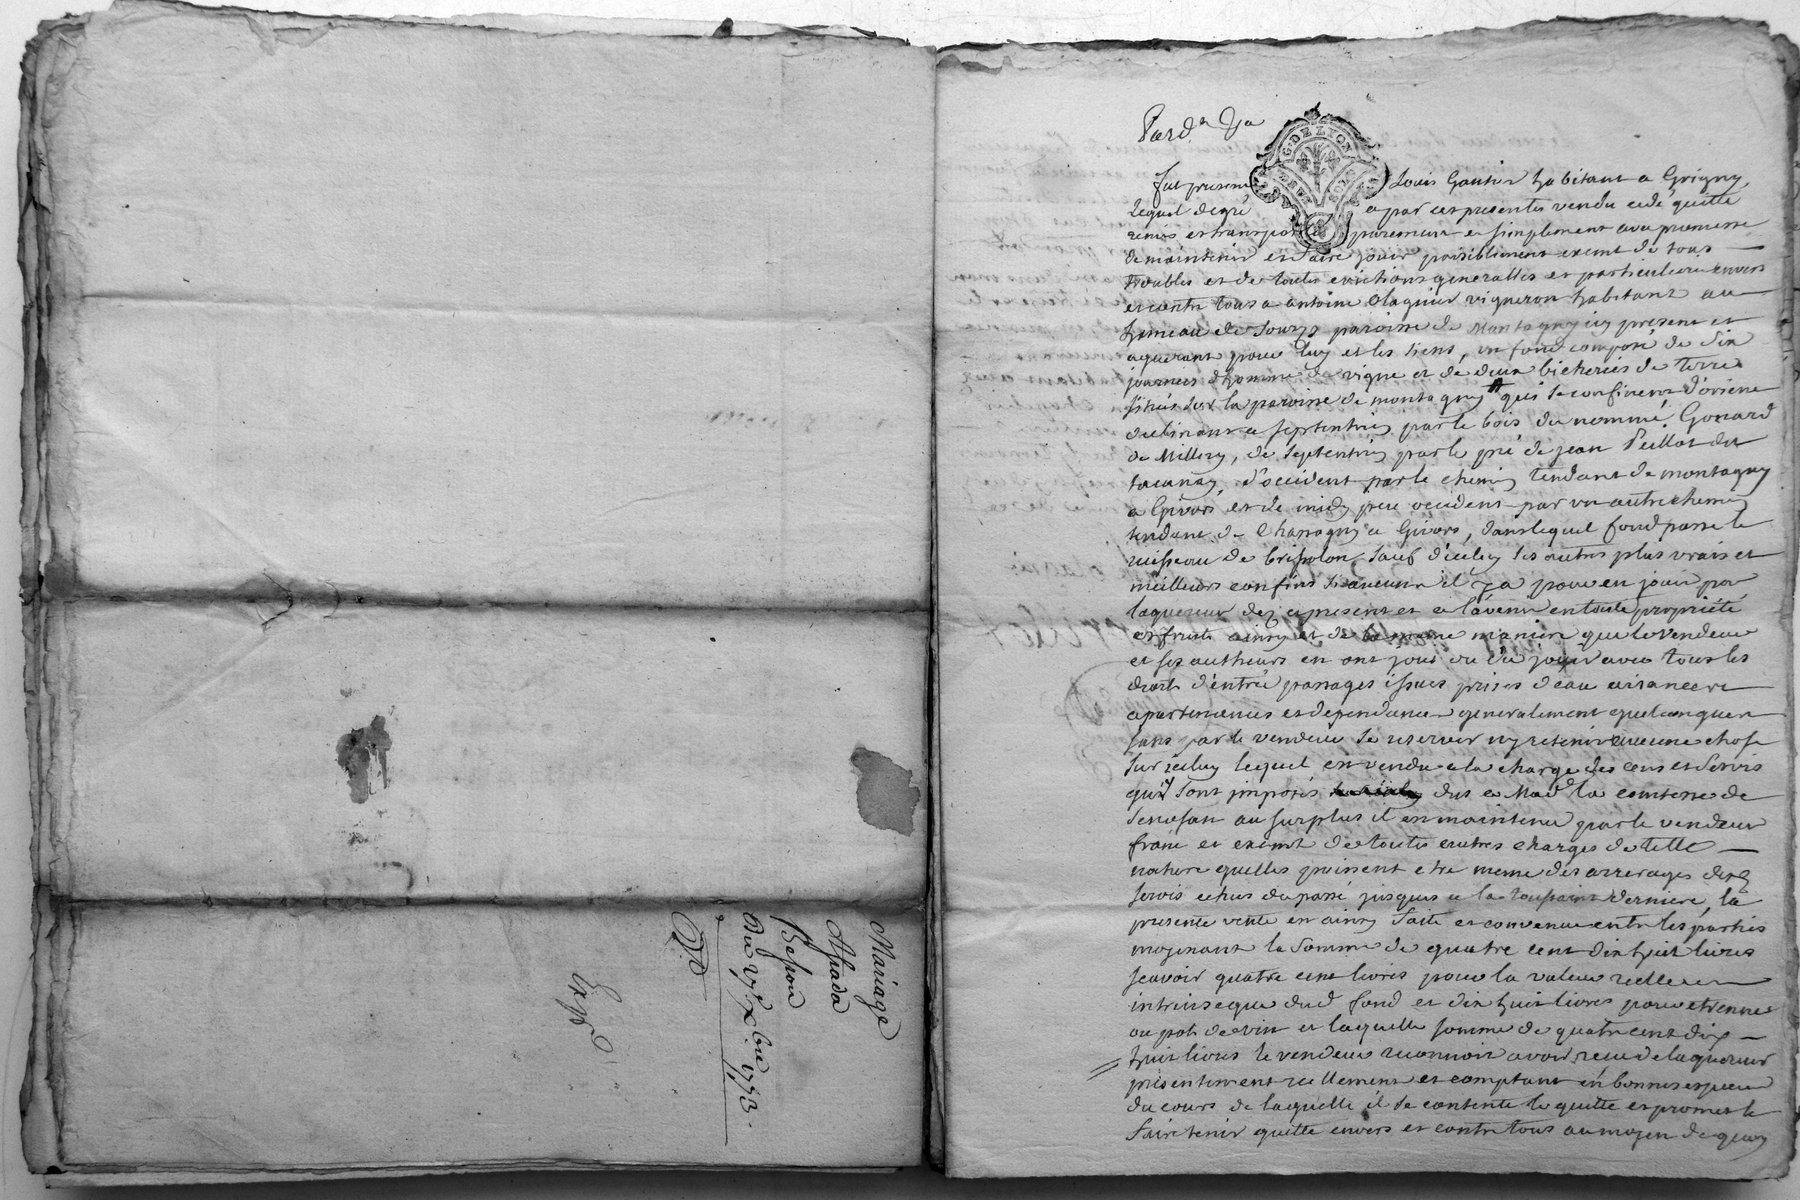 Mariage
Besson
1773.
Exp.d
Pard.t
G. DE LYON
fut present Louis Gautier habitant a Grigny
lequel de gré a par ces presentes vendu cedé quitté
remis et transporté purement et simplement avec promesse
de maintenir et faire jouir paisiblement exemt de tous
troubles et de toutes evictions generalles et particulieres envers
et contre tous a antoine Olagnier vigneron habitant au
hameau de Sourzy paroisse de Montagny icy present et
aquerant pour luy et les siens, un fond composé de dix
journées d'homme de vigne et de deux bicherées de terre
situés sur la paroisse de montagny qui se confinent d'orient
declinant a septentrion par le bois du nommé Gonard
de Millery, de septentrion par le pré de jean Peillot dit
d'occident par le chemin tendant de montagny
a Givors et de midy occident par un autre chemin
tendant de Chassagny a Givors, dans lequel fond passe le
ruisseau de sauf d'iceluy ses autres plus vrais et
meilleurs confins si aucuns il y a pour en jouir par
laquereur dez a present et a l'avenir en toute propriété
et fruits ainsy et de la meme maniere que le vendeur
et ses autheurs en ont joui ou dû jouir avec tous les
droits d'entrée passages issues prises d'eau aisances
apartenances et dependances generalement quelconques
sans par le vendeur se reserver ny retenir aucune chose
sur iceluy lequel est vendu a la charge des cens et servis
qui y sont imposés dus a Mad. la comtesse de
Senosan au surplus il est maintenu par le vendeur
franc et exemt de toutes autres charges de telle
nature quelles puissent etre meme des arrerages des
servis echus du passé jusques a la toussaint derniere, la
presente vente est ainsy faite et convenue entre les parties
moyenant la somme de quatre cent dix huit livres
scavoir quatre cent livres pour la valeur reelle et
intrinseque dud. fond et dix huit livres pour etrennes
ou pot de vin et laquelle somme de quatre cent dix
huit livres le vendeur reconnoit avoir recu de laquereur
presentement reellement et comptant en bonnes especes
du cours de laquelle il se contente le quitte et promet le
faire tenir quitte envers et contre tous au moyen de quoy